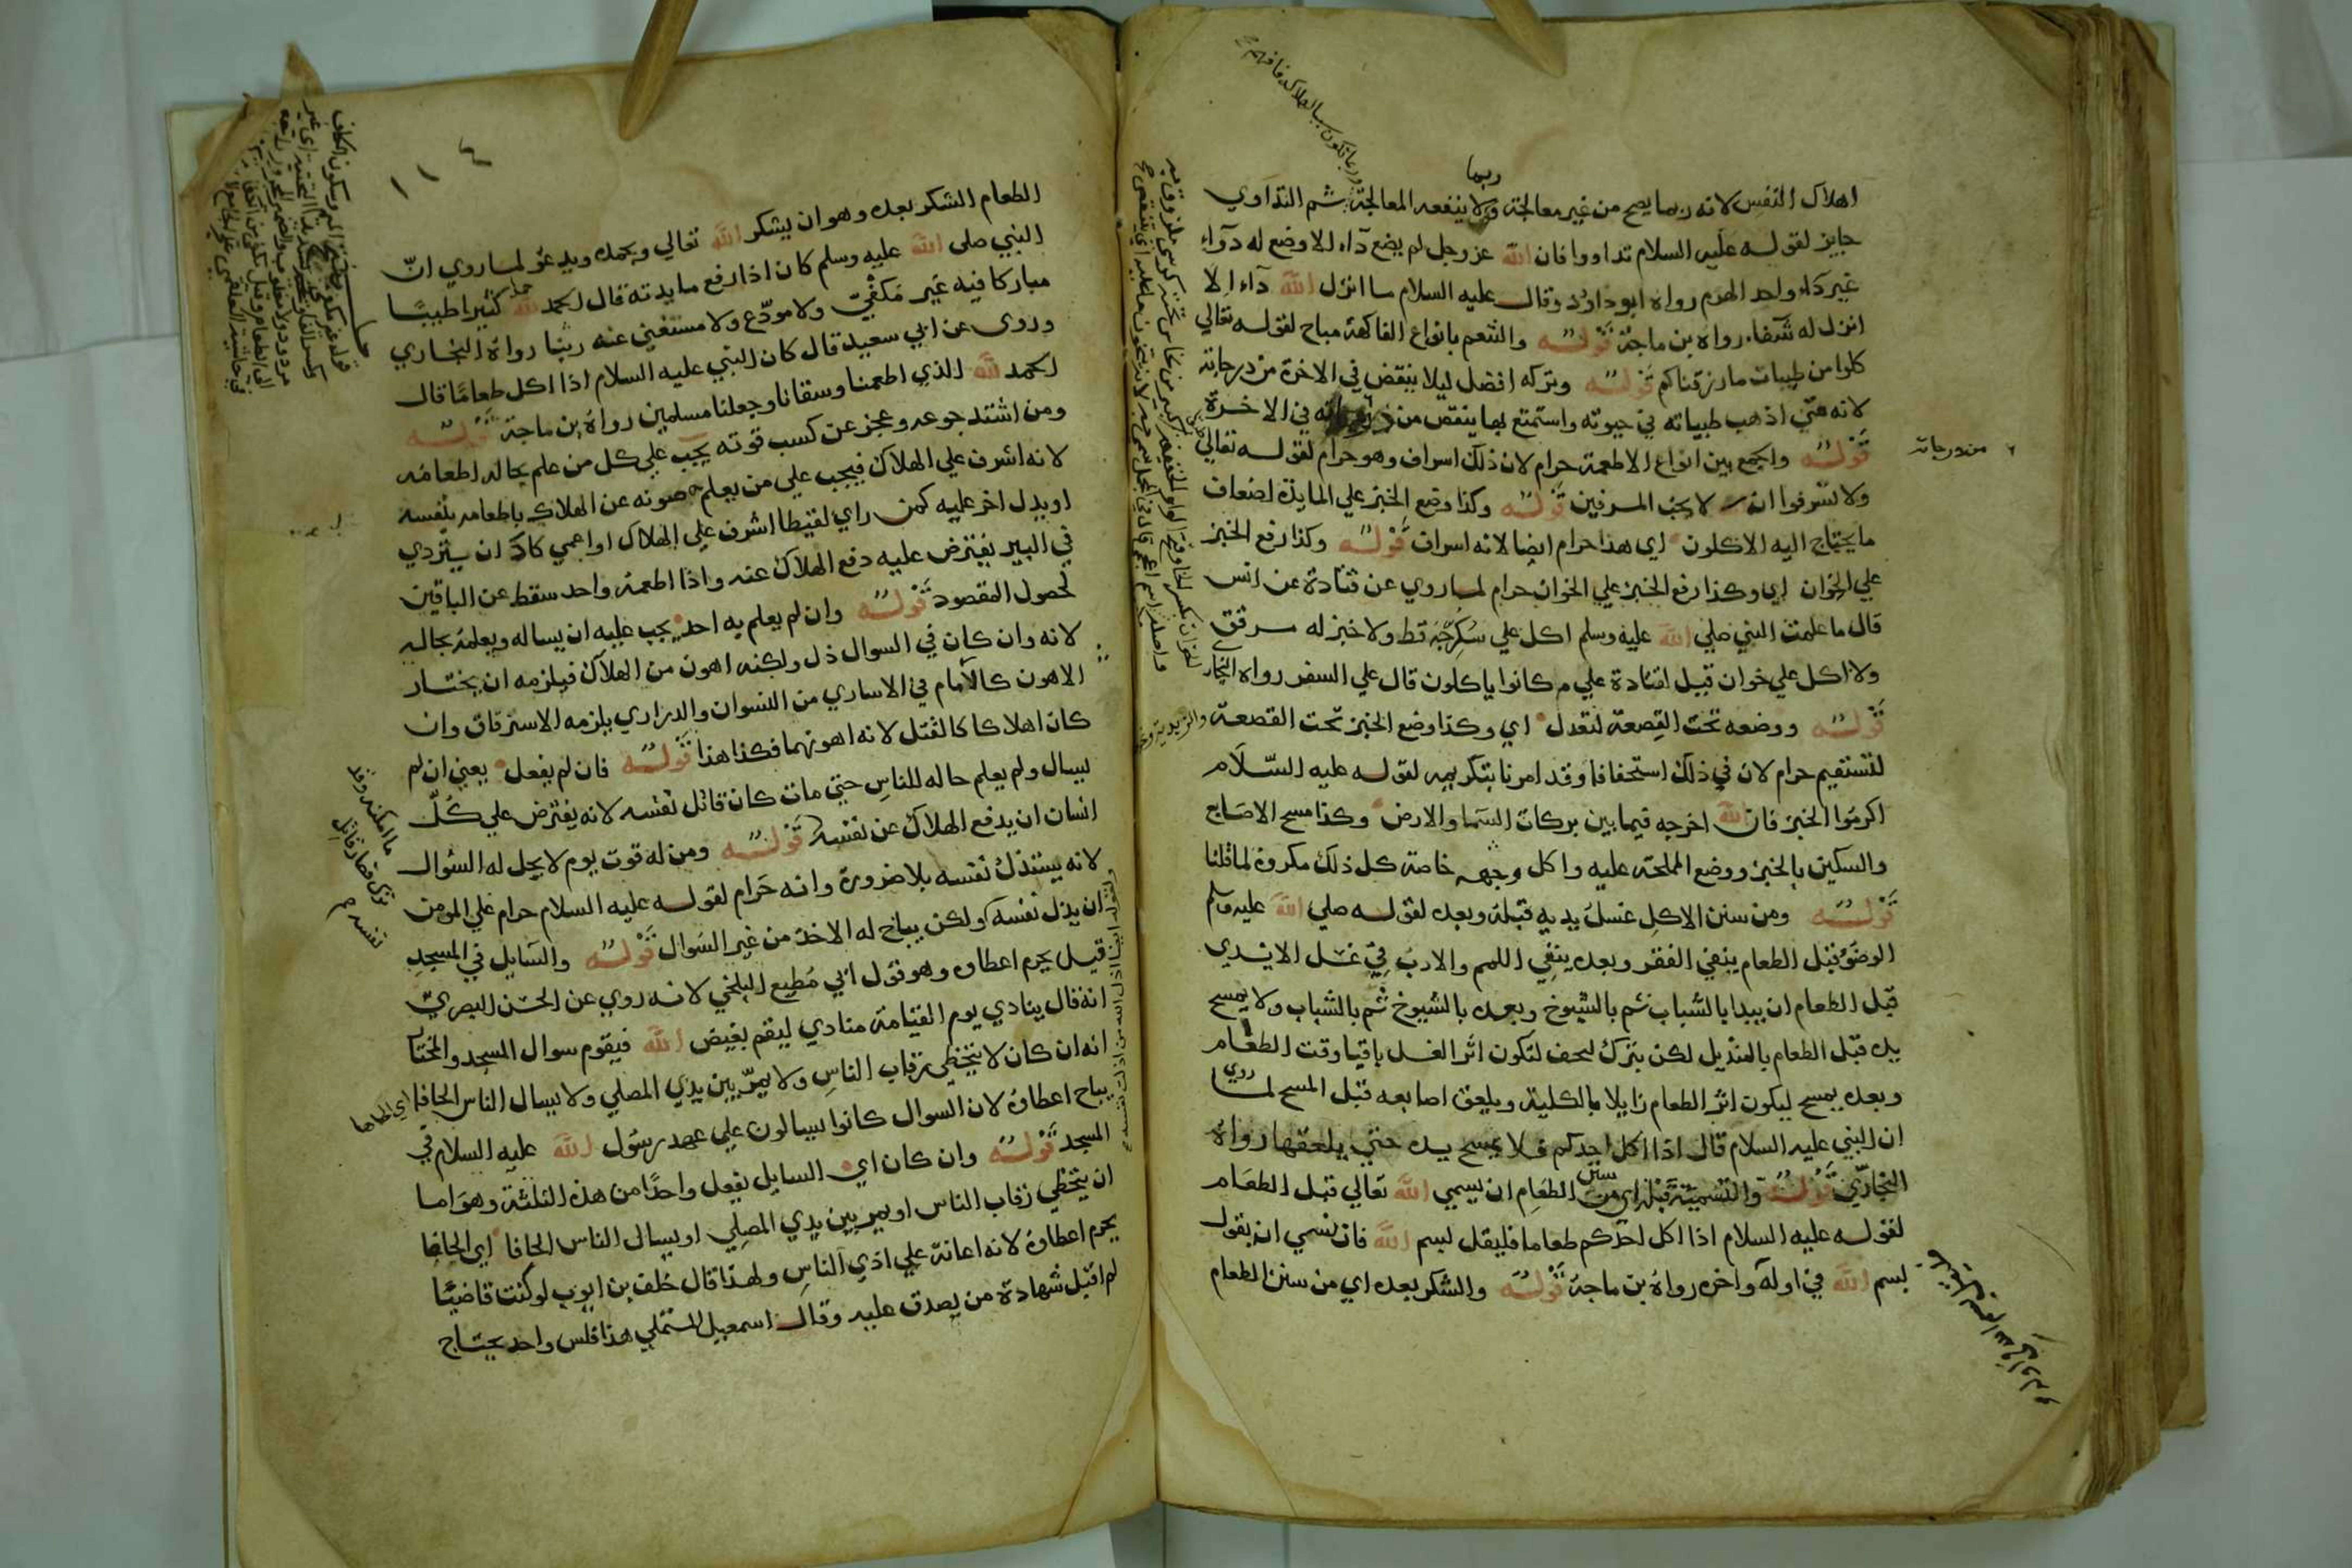 اهلاك النفس لانه ربما يصح من غير معالجة وربما لا ينفعه المعالجة ثم التداوي
جايز لقوله عليه السلام تداووا فان الله عز وجل لم يضع دآء الا وضع له دوآء
غير دآء واحد الهرم رواه ابو داود وقال عليه السلام ما انزل الله دآء الا
انزل له شفاء رواه بن ماجة قوله والتنعم بانواع الفاكهة مباح لقوله تعالي
كلوا من طيبات ما رزقناكم قوله وتركه افضل ليلا ينقص في الاخرة من درجاته
لانه متي اذهب طيباته في حيوته واستمتع بها ينقص من في الاخرة
قوله والجمع بين انواع الاطعمة حرام لان ذلك اسراف وهو حرام لقوله تعالي
من درجاته
ولا تسرفوا انه لا يحب المسرفين قوله وكذا وضع الخبز علي المايدة اضعاف
ما يحتاج اليه الاكلون اي هذا حرام ايضا لانه اسراف قوله وكذا رفع الخبز
علي الخوان اي وكذا رفع الخبز علي الخوان حرام لما روي عن قتادة عن انس
قال ما علمت النبي صلي الله عليه وسلم اكل علي سكرجة قط ولا خبز له مرقق
ولا اكل علي خوان قيل لقتادة علي م كانوا ياكلون قال علي السفر رواه البخاري
قوله ووضعه تحت القصعة لتعدل اي وكذا وضع الخبز تحت القصعة
لتستقيم حرام لان في ذلك استخفافا وقد امرنا بتكريمه لقوله عليه السلام
اكرموا الخبز فان الله اخرجه فيما بين بركات السما والارض وكذا مسح الاصابع
والسكين بالخبز ووضع المملحة عليه واكل وجهه خاصة كل ذلك مكروه لما قلنا
قوله ومن سنن الاكل غسل يديه قبله وبعده لقوله صلي الله عليه وسلم
الوضوء قبل الطعام ينفي الفقر وبعده ينفي اللمم والادب في غسل الايدي
قبل الطعام ان يبدا بالشباب ثم بالشيوخ وبعده بالشيوخ ثم بالشباب ولا يمسح
يده قبل الطعام بالمنديل لكن يترك ليجف لتكون اثر الغسل باقيا وقت الطعام
وبعده يمسح ليكون اثر الطعام زايلا بالكلية ويلعق اصابعه قبل المسح لما روي
ان النبي عليه السلام قال اذا اكل احدكم فلا يمسح يده حتي يلعقها رواه
البخاري قوله والتسمية قبله اي من سنن الطعام ان يسمي الله تعالي قبل الطعام
لقوله عليه السلام اذا اكل احدكم طعاما فليقل بسم الله فان نسي ان يقول
بسم الله في اوله واخره رواه بن ماجة قوله والشكر بعده اي من سنن الطعام
الطعام الشكر بعده وهو ان يشكر الله تعالي ويحمده ويدعو لما روي ان
النبي صلى الله عليه وسلم كان اذا رفع مايدته قال الحمد لله حمدا كثيرا طيبا
مباركا فيه غير مكفي ولا مودع ولا مستغني عنه ربنا رواه البخاري
وروى عن ابي سعيد قال كان النبي عليه السلام اذا اكل طعاما قال
الحمد لله الذي اطعمنا وسقانا وجعلنا مسلمين رواه بن ماجة قوله
ومن اشتد جوعه وعجز عن كسب قوته يجب علي كل من علم بحاله اطعامه
لانه اشرف علي الهلاك فيجب علي من يعلم صونه عن الهلاك باطعامه بنفسه
او يدل اخر عليه كمن راي لقيطا اشرف علي الهلاك او اعمي كاد ان يتردي
في البير يفترض عليه دفع الهلاك عنه واذا اطعمه واحد سقط عن الباقين
لحصول المقصود قوله وان لم يعلم به احد يجب عليه ان يساله ويعلمه بحاله
لانه وان كان في السوال ذل ولكنه اهون من الهلاك فيلزمه ان يختار
الاهون كالامام في الاساري من النسوان والدراري يلزمه الاسترقاق وان
كان اهلاكا كالقتل لانه اهونهما فكذا هذا قوله فان لم يفعل يعني ان لم
يسال ولم يعلم حاله للناس حتي مات كان قاتل نفسه لانه يفترض علي كل
انسان ان يدفع الهلاك عن نفسه قوله ومن له قوت يوم لا يحل له السوال
لانه يستذل نفسه بلا ضرورة وانه حرام لقوله عليه السلام حرام علي المومن
ان يذل نفسه ولكن يباح له الاخذ من غير السوال قوله والسايل في المسجد
قيل يحرم اعطاه وهو قول ابي مطيع البلخي لانه روي عن الحسن البصري
انه قال ينادي يوم القيامة منادي ليقم بغيض الله فيقوم سوال المسجد والمختار
انه ان كان لا يتخطي رقاب الناس ولا يمر بين يدي المصلي ولا يسال الناس الحافا
يباح اعطاوه لان السوال كانوا يسالون علي عهد رسول الله عليه السلام في
المسجد قوله وان كان اي السايل يفعل واحدا من هذه الثلثة وهو اما
ان يتخطي رقاب الناس او يمر بين يدي المصلي او يسال الناس الحافا اي الحافا
يحرم اعطاوه لانه اعانة علي اذي الناس ولهذا قال خلف بن ايوب لو كنت قاضيا
لم اقبل شهادة من يصدق عليه وقال اسمعيل المستملي هذا فلس واحد يحتاج